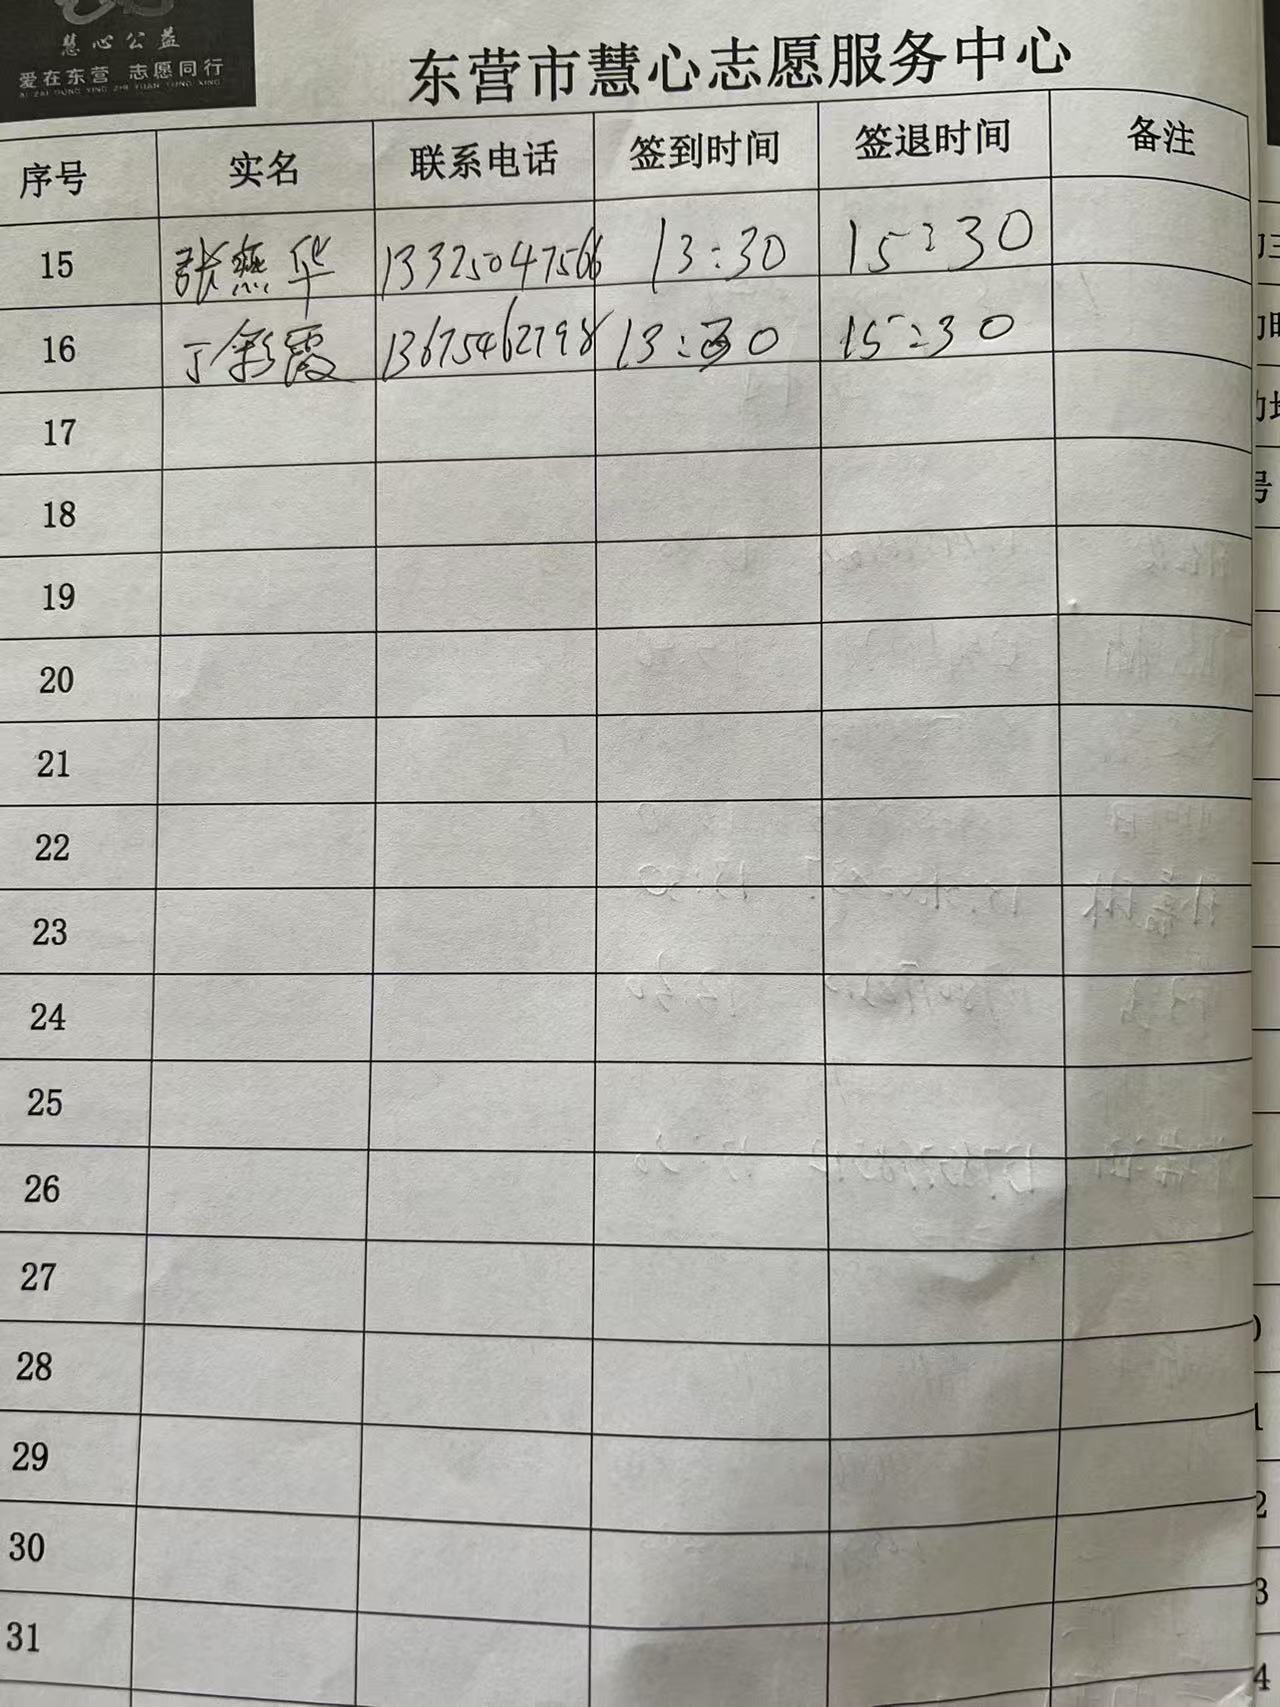 慧心公益
爱在东营 志愿同行
AI ZAI DONG YING ZHI YUAN TONG XING
东营市慧心志愿服务中心
序号 实名 联系电话 签到时间 签退时间 备注
15 张燕华 13325047566 13:30 15:30
16 丁彩霞 13675462798 13:30 15:30
17
18
19
20
21
22
23
24
25
26
27
28
29
30
31
号